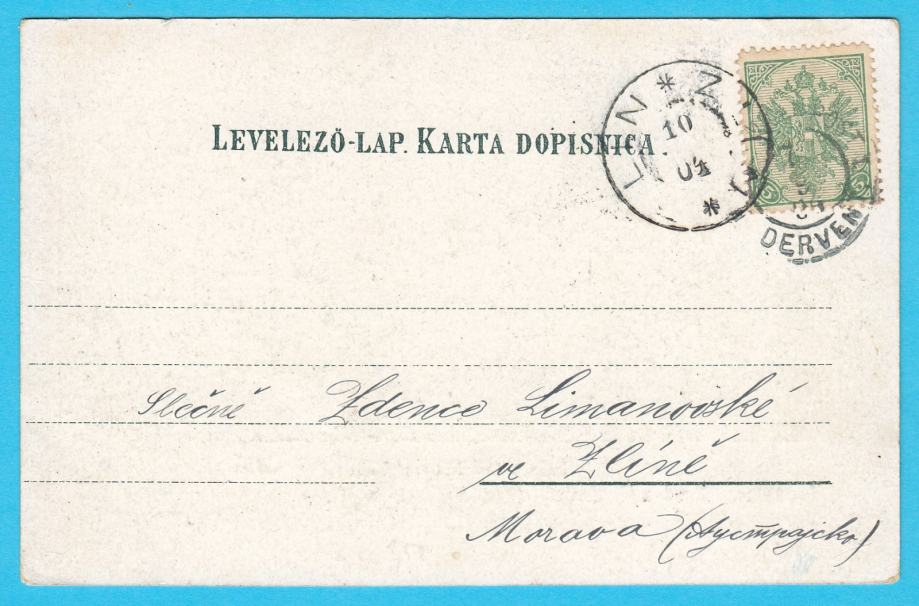 LEVELEZŐ-LAP. KARTA DOPISNICA.
10
04
DERVEN
5 5
Slečně Zdence Limanovské
ve Zlíně
Morava (Аустрајско)